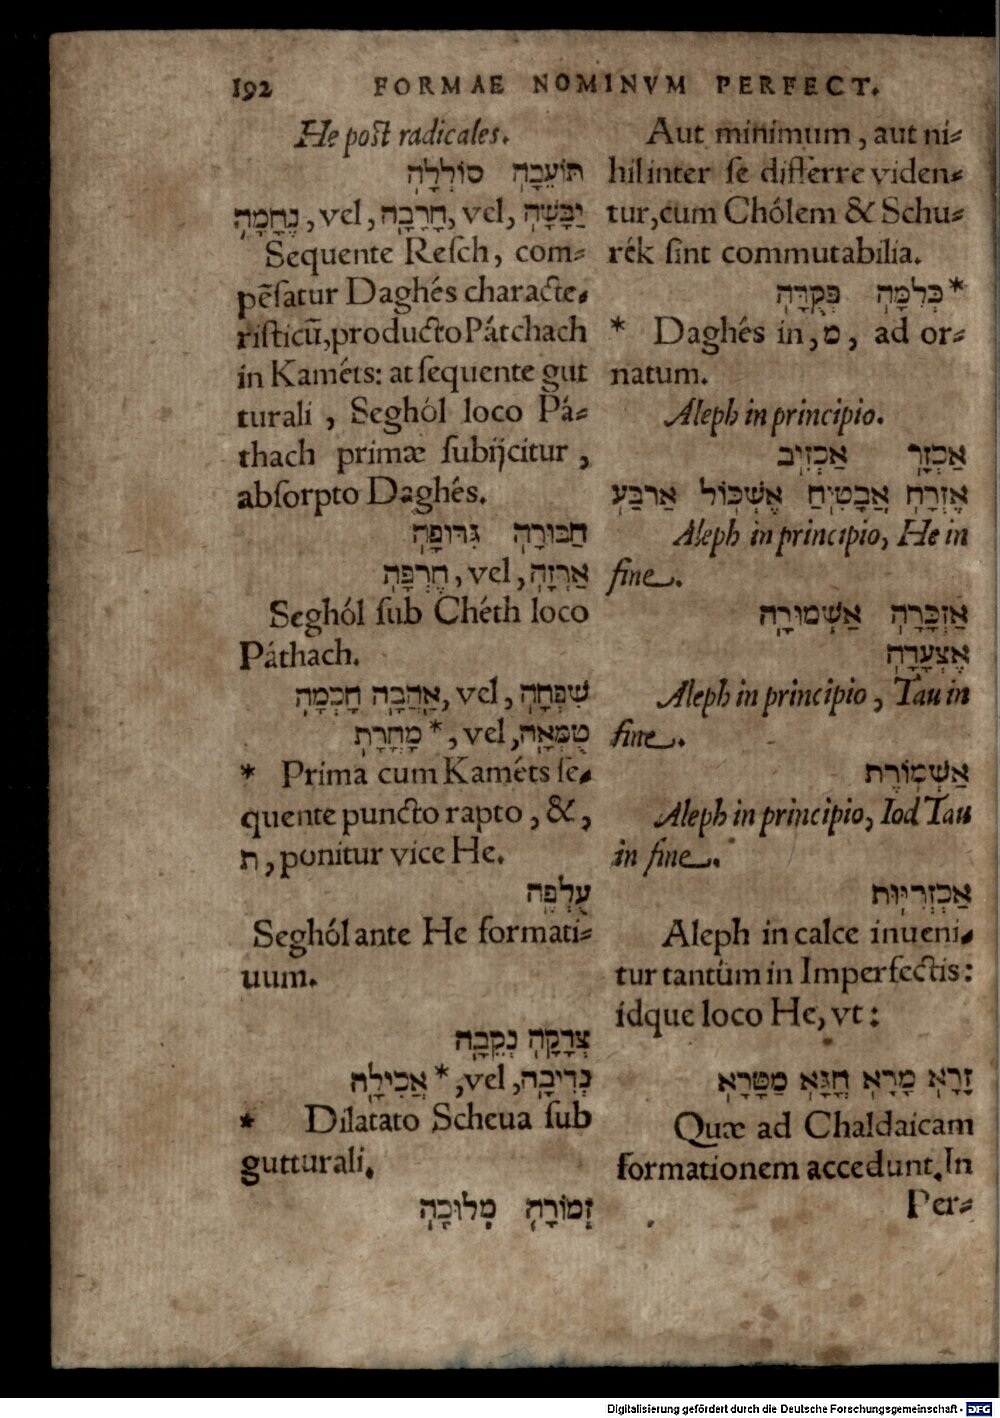 192 FORMAE NOMINVM PERFECT.
He post radicales.
תּוֹעֵבָה סוֹלְלָה
יַבָּשָׁה, vel, חָרָבָה, vel, נֶחָמָה
Sequente Resch, com=
pẽsatur Daghés characte=
risticũ, producto Pátchach
in Kaméts: at sequente gut
turali, Seghól loco Pá=
thach primæ subijcitur,
absorpto Daghés.
חַבּוּרָה גִּדּוּפָה
אַרְזָה, vel, חֶרְפָּה
Seghól sub Chéth loco
Páthach.
שִׁפְחָה, vel, אַהֲבָה חָכְמָה
טֻמְאָה, vel, * מָחֳרָת
* Prima cum Kaméts se=
quente puncto rapto, &,
ת, ponitur vice He.
עֻלְפֶּה
Seghól ante He formati=
uum.
צְדָקָה נְקֵבָה
נְדִיבָה, vel, * אֲכִילָה
* Dilatato Scheua sub
gutturali.
זְמוֹרָה מְלוּכָה
Aut minimum, aut ni=
hil inter se differre viden=
tur, cum Chólem & Schu=
rék sint commutabilia.
* כְּלִמָּה פְּקֻדָּה
* Daghés in, מ, ad or=
natum.
Aleph in principio.
אַכְזָר אַכְזִיב
אֶזְרָח אֲבָטִיחַ אֶשְׁכּוֹל אַרְבַּע
Aleph in principio, He in
fine.
אַזְכָּרָה אַשְׁמוּרָה
אֶצְעָדָה
Aleph in principio, Tau in
fine.
אַשְׁמוֹרֶת
Aleph in principio, Iod Tau
in fine.
אַכְזְרִיּוּת
Aleph in calce inueni=
tur tantùm in Imperfectis:
idque loco He, vt:
זָרָא מָרָא חָגָּא מַטָּרָא
Quæ ad Chaldaicam
formationem accedunt. In
Per=
Digitalisierung gefördert durch die Deutsche Forschungsgemeinschaft - DFG